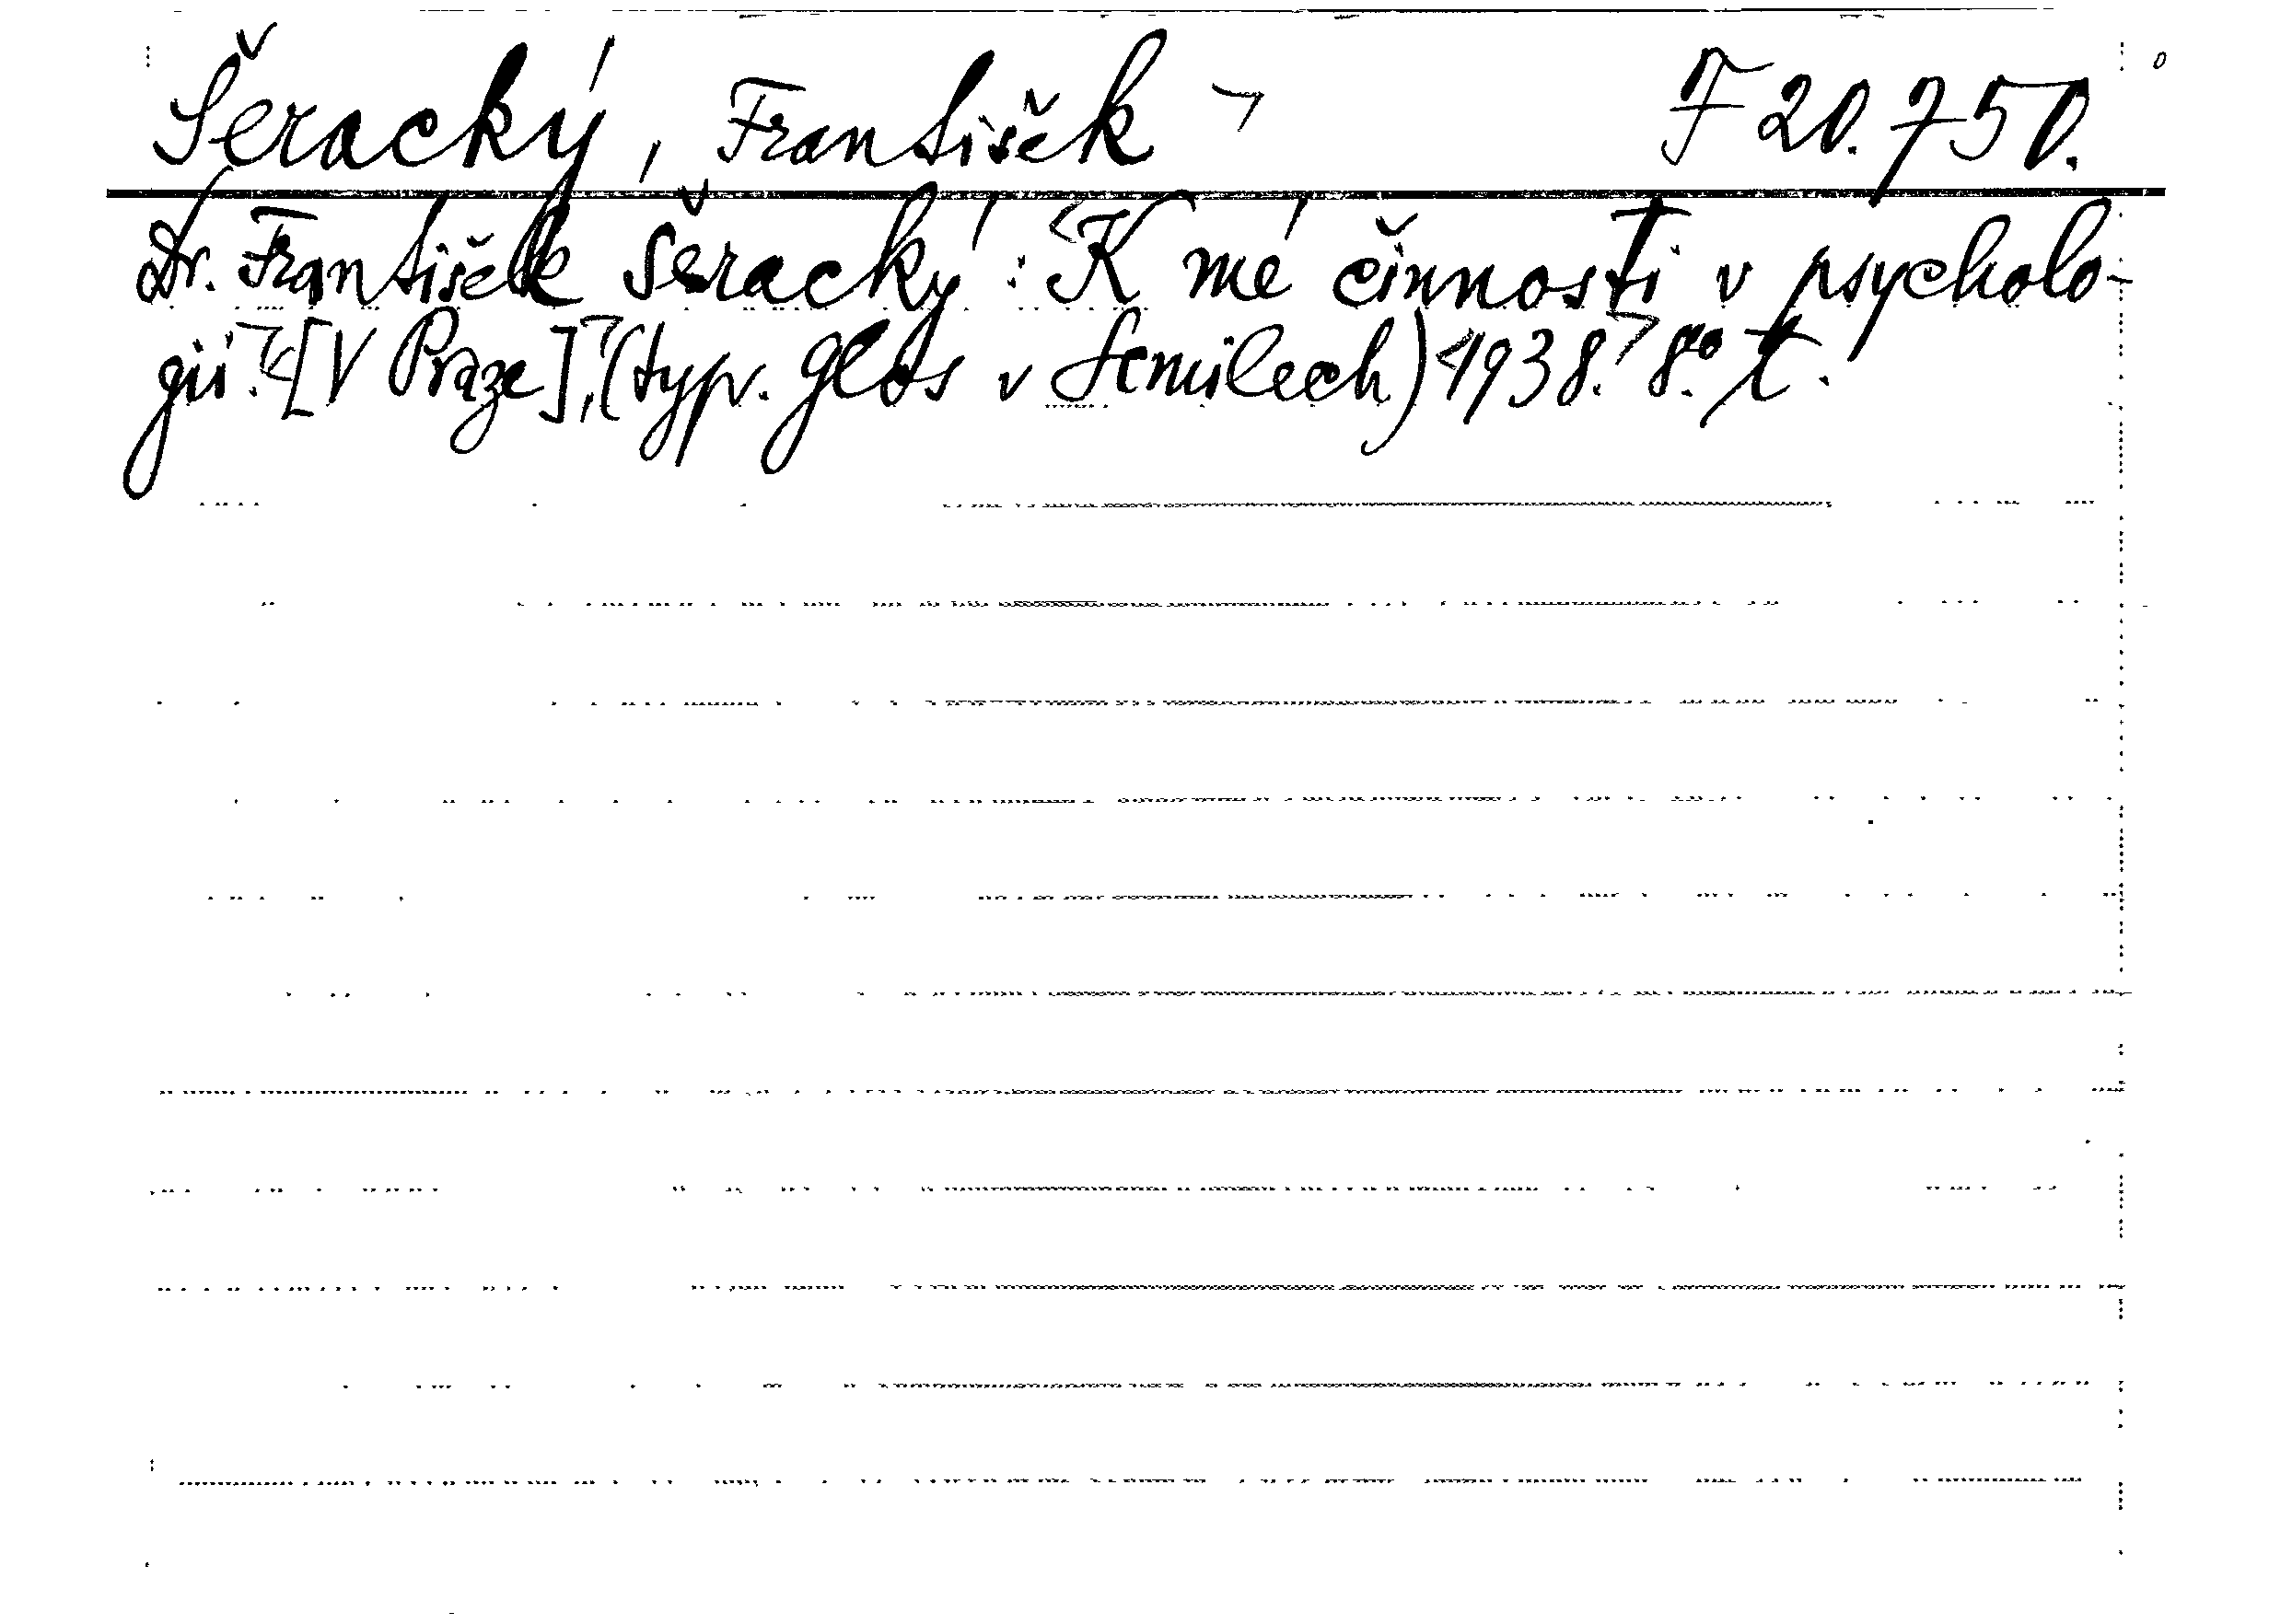 Šeracký, František F 20.750.
Dr. František Šeracký: K mé činnosti v psycholo-
gii. [V Praze], (typ. Glos v Semilech) 1938. 8° t.